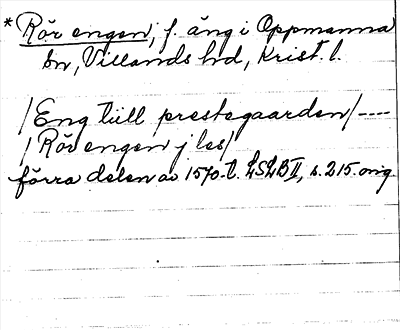 * Rör engen, f. äng i Oppmanna
sn, Villands hd, Krist. l.
/Eng tiill prestegaarden/----
/Rör engen j les/
förra delen av 1570-t. LSLB II, s. 215. orig.